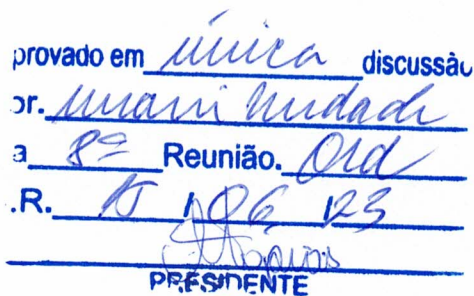 provado em única discussão
or. unanimidade
a 8ª Reunião. Ord
.R. 15 / 06 /23
PRESIDENTE